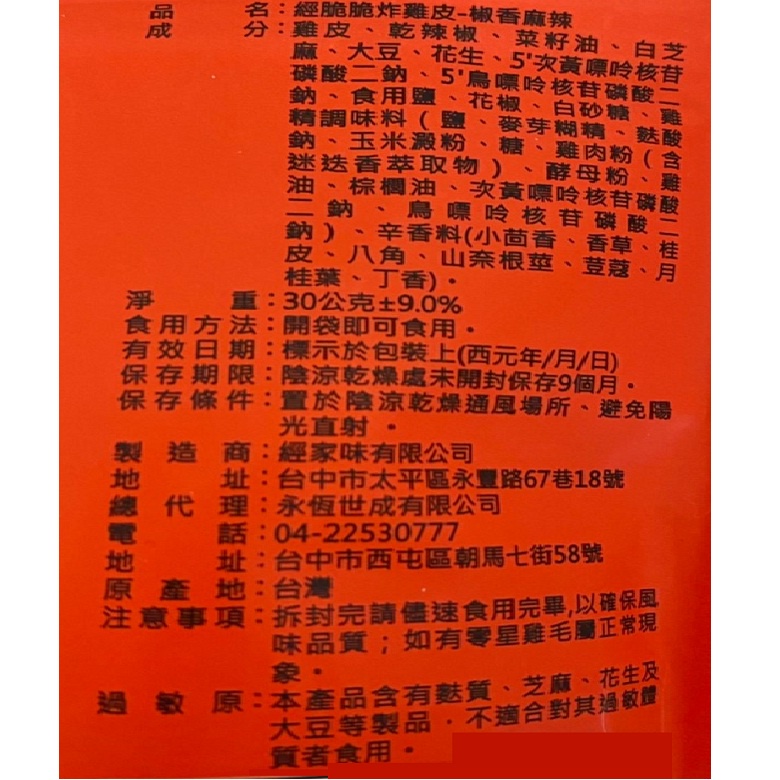 品名：經脆脆炸雞皮-椒香麻辣
成分：雞皮、乾辣椒、菜籽油、白芝
麻、大豆、花生、5'次黃嘌呤核苷
磷酸二鈉、5'鳥嘌呤核苷磷酸二
鈉、食用鹽、花椒、白砂糖、雞
精調味料(鹽、麥芽糊精、麩酸
鈉、玉米澱粉、糖、雞肉粉(含
迷迭香萃取物)、酵母粉、雞
油、棕櫚油、次黃嘌呤核苷磷酸
二鈉、鳥嘌呤核苷磷酸二
鈉)、辛香料(小茴香、香草、桂
皮、八角、山奈根莖、荳蔻、月
桂葉、丁香)。
淨重：30公克±9.0%
食用方法：開袋即可食用。
有效日期：標示於包裝上(西元年/月/日)
保存期限：陰涼乾燥處未開封保存9個月。
保存條件：置於陰涼乾燥通風場所、避免陽
光直射。
製造商：經家味有限公司
地址：台中市太平區永豐路67巷18號
總代理：永恆世成有限公司
電話：04-22530777
地址：台中市西屯區朝馬七街58號
原產地：台灣
注意事項：拆封完請儘速食用完畢,以確保風
味品質；如有零星雞毛屬正常現
象。
過敏原：本產品含有麩質、芝麻、花生及
大豆等製品，不適合對其過敏體
質者食用。